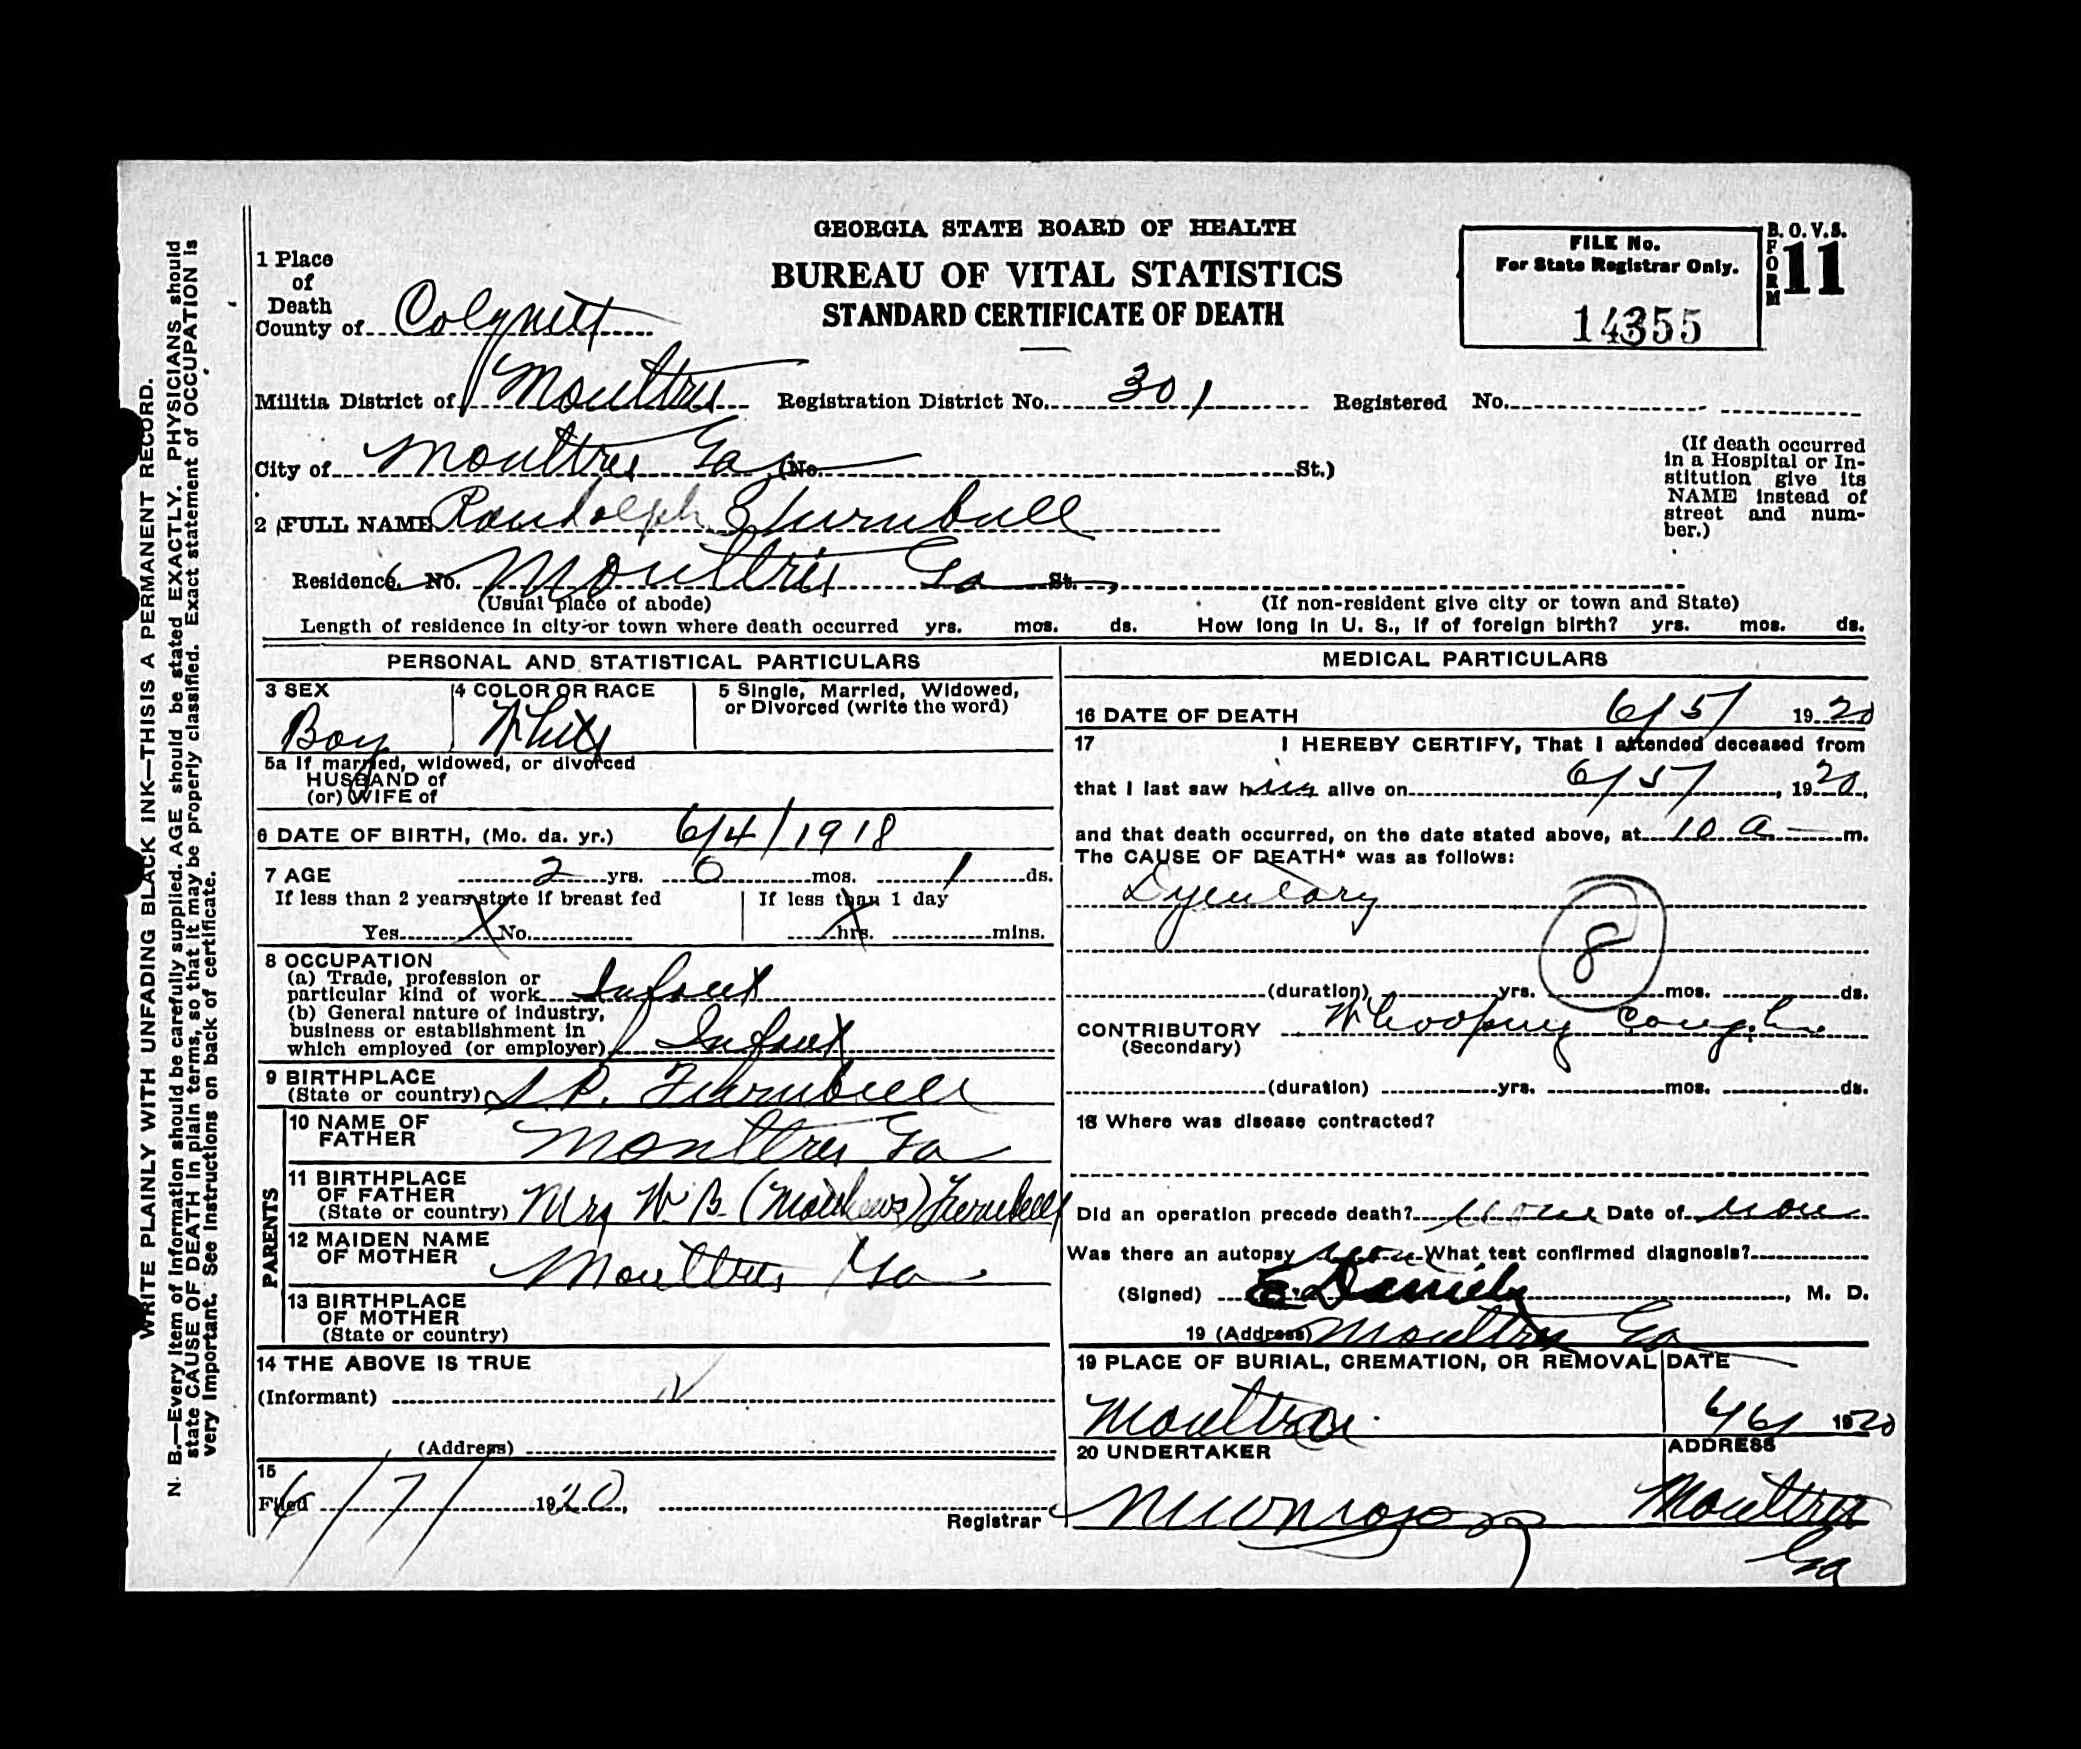 GEORGIA STATE BOARD OF HEALTH
BUREAU OF VITAL STATISTICS
STANDARD CERTIFICATE OF DEATH
FILE No.
For State Registrar Only.
14355
B. O. V. S.
FORM 11
1 Place
of
Death
County of Colquitt
Militia District of Moultrie Registration District No. 301 Registered No.
City of Moultrie Ga (No. St.)
(If death occurred
in a Hospital or In-
stitution give its
NAME instead of
street and num-
ber.)
2 FULL NAME Randolph Turnbull
Residence. No. Moultrie Ga St.
(Usual place of abode) (If non-resident give city or town and State)
Length of residence in city or town where death occurred yrs. mos. ds. How long in U. S., if of foreign birth? yrs. mos. ds.
PERSONAL AND STATISTICAL PARTICULARS
3 SEX 4 COLOR OR RACE 5 Single, Married, Widowed,
or Divorced (write the word)
Boy White
5a If married, widowed, or divorced
HUSBAND of
(or) WIFE of
6 DATE OF BIRTH, (Mo. da. yr.) 6/4/1918
7 AGE 2 yrs. 0 mos. 1 ds.
If less than 2 years state if breast fed If less than 1 day
Yes X No hrs. mins.
8 OCCUPATION
(a) Trade, profession or
particular kind of work Infant
(b) General nature of industry,
business or establishment in
which employed (or employer) Infant
9 BIRTHPLACE
(State or country) Turnbull
PARENTS
10 NAME OF
FATHER Moultrie Ga
11 BIRTHPLACE
OF FATHER
(State or country) Mrs W. B. (Matthews) Turnbull
12 MAIDEN NAME
OF MOTHER Moultrie Ga
13 BIRTHPLACE
OF MOTHER
(State or country)
14 THE ABOVE IS TRUE
(Informant)
(Address)
15
Filed 6/7/ 1920, Registrar
MEDICAL PARTICULARS
16 DATE OF DEATH 6/5/ 1920
17 I HEREBY CERTIFY, That I attended deceased from
that I last saw him alive on 6/5/, 1920,
and that death occurred, on the date stated above, at 10 a m.
The CAUSE OF DEATH* was as follows:
Dysentary
8
(duration) yrs. mos. ds.
CONTRIBUTORY Whooping Cough
(Secondary)
(duration) yrs. mos. ds.
18 Where was disease contracted?
Did an operation precede death? none Date of none
Was there an autopsy none What test confirmed diagnosis?
(Signed) E. Daniels, M. D.
19 (Address) Moultrie Ga
19 PLACE OF BURIAL, CREMATION, OR REMOVAL DATE
Moultrie 6/6/ 1920
20 UNDERTAKER ADDRESS
Moultrie
Ga
WRITE PLAINLY WITH UNFADING BLACK INK—THIS IS A PERMANENT RECORD.
N. B.—Every item of information should be carefully supplied. AGE should be stated EXACTLY. PHYSICIANS should
state CAUSE OF DEATH in plain terms, so that it may be properly classified. Exact statement of OCCUPATION is
very important. See instructions on back of certificate.